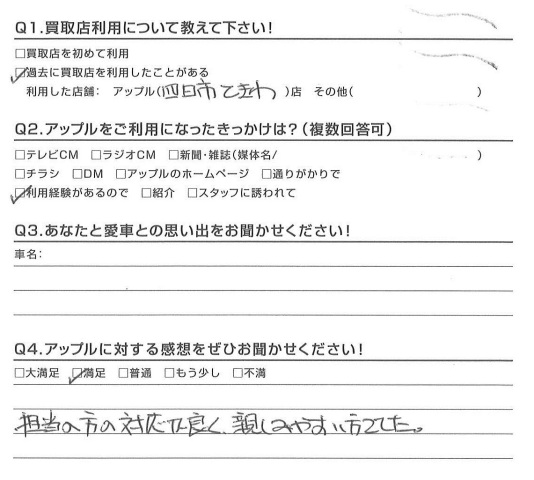 Q1.買取店利用について教えて下さい!
□買取店を初めて利用
☑過去に買取店を利用したことがある
利用した店舗: アップル(四日市ときわ)店 その他( )
Q2.アップルをご利用になったきっかけは?(複数回答可)
□テレビCM □ラジオCM □新聞・雑誌(媒体名/ )
□チラシ □DM □アップルのホームページ □通りがかりで
☑利用経験があるので □紹介 □スタッフに誘われて
Q3.あなたと愛車との思い出をお聞かせください!
車名:
Q4.アップルに対する感想をぜひお聞かせください!
□大満足 ☑満足 □普通 □もう少し □不満
担当の方の対応は良く、親しみやすい方でした。